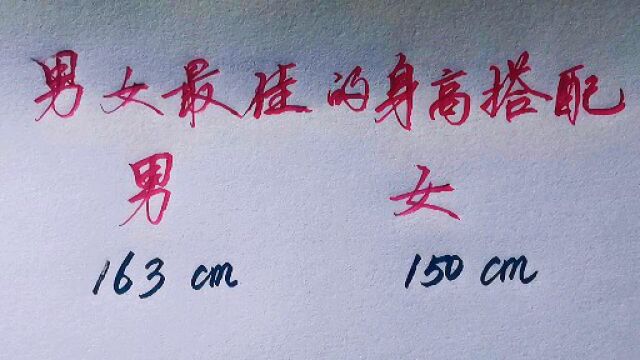 男女最佳的身高搭配
男 女
163 cm 150 cm